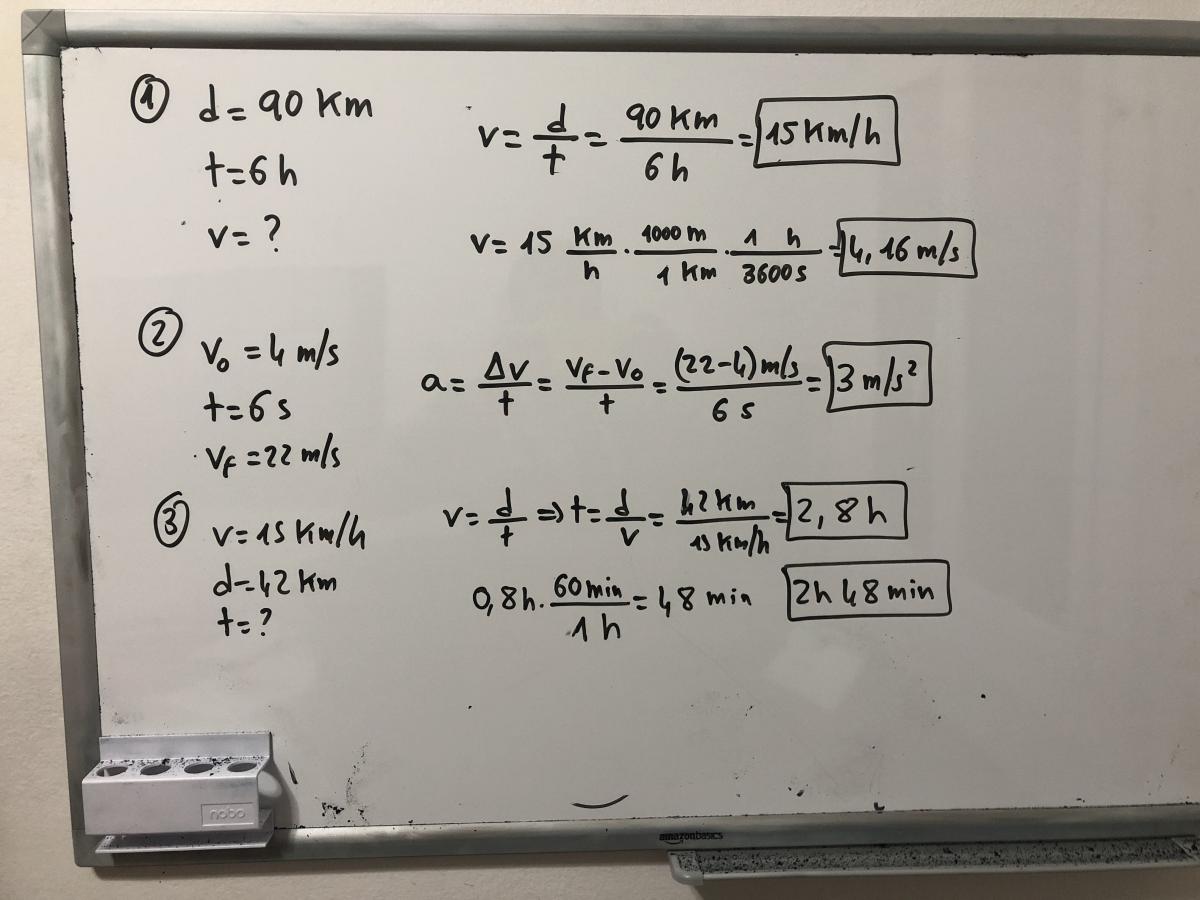 ① d = 90 Km
t = 6 h
v = ?
v = d/t = 90 Km/6 h = 15 Km/h
v = 15 Km/h · 1000 m/1 Km · 1 h/3600 s = 4,16 m/s
② V₀ = 4 m/s
t = 6 s
Vf = 22 m/s
a = Δv/t = Vf - V₀/t = (22-4) m/s/6 s = 3 m/s²
③ v = 15 Km/h
d = 42 Km
t = ?
v = d/t ⇒ t = d/v = 42 Km/15 Km/h = 2,8 h
0,8 h · 60 min/1 h = 48 min 2h 48 min
nobo
amazonbasics